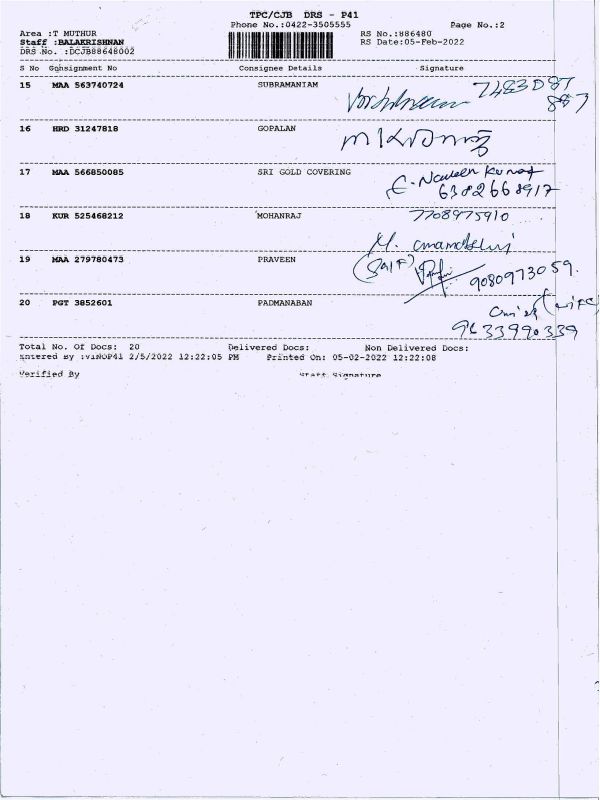 TPC/CJB DRS - P41
Phone No.:0422-3505555 Page No.:2
Area :T MUTHUR RS No.:886480
Staff :BALAKRISHNAN RS Date:05-Feb-2022
DRS No. :DCJB88648002
S No Consignment No Consignee Details Signature
15 MAA 563740724 SUBRAMANIAM
16 HRD 31247818 GOPALAN
17 MAA 566850085 SRI GOLD COVERING E. Naveen Kumar
6382668917
18 KUR 525468212 MOHANRAJ 7708975910
M.
19 MAA 279780473 PRAVEEN (Self) 9080973059.
20 PGT 3852601 PADMANABAN (wife)
9633990339
Total No. Of Docs: 20 Delivered Docs: Non Delivered Docs:
Entered By :VINOP41 2/5/2022 12:22:05 PM Printed On: 05-02-2022 12:22:08
Verified By Staff Signature